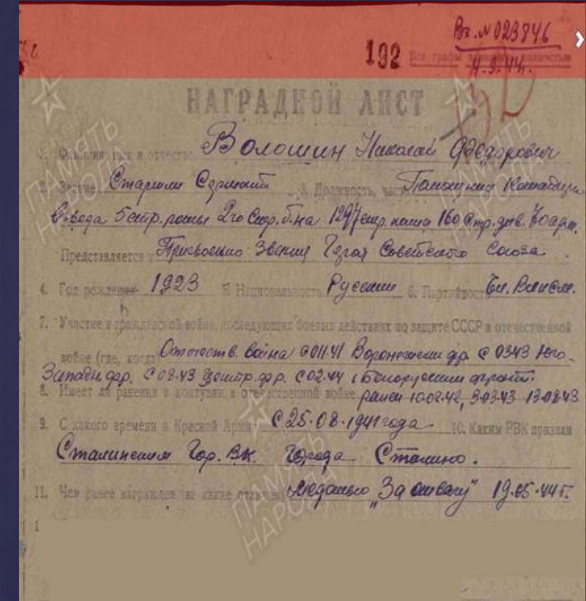 Вх. № 023846
192 Все графы
4.9.44г.
НАГРАДНОЙ ЛИСТ
1. Фамилия, имя и отчество Волошин Николай Федорович
2. Звание Старший Сержант 3. Должность, часть Помощник Командира
взвода 5 стр. роты 2го Стр. б-на 1297 стр. полка 160 Стр. див. 70 арм.
Представляется к Присвоению Звания Героя Советского Союза.
4. Год рождения 1923 5. Национальность Русский 6. Партийность
7. Участие в гражданской войне, последующих боевых действиях по защите СССР и отечественной
войне (где, когда) Отечеств. война с 011.41 Воронежский фр. с 03.43 Юго-
Западн. фр. с 08.43 Центр. фр. с 02.44 1 Белорусский фронт.
8. Имеет ли ранения и контузии в отечественной войне ранен 10.02.42, 3.03.43 13.08.43
9. С какого времени в Красной Армии с 25.08.1941 года 10. Каким РВК призван
Сталинским Гор. В.К. Города Сталино.
11. Чем ранее награжден (за какие отличия) Медалью „За отвагу" 19.05.44г.
ПАМЯТЬ НАРОДА
ПАМЯТЬ НАРОДА
ПАМЯТЬ НАРОДА